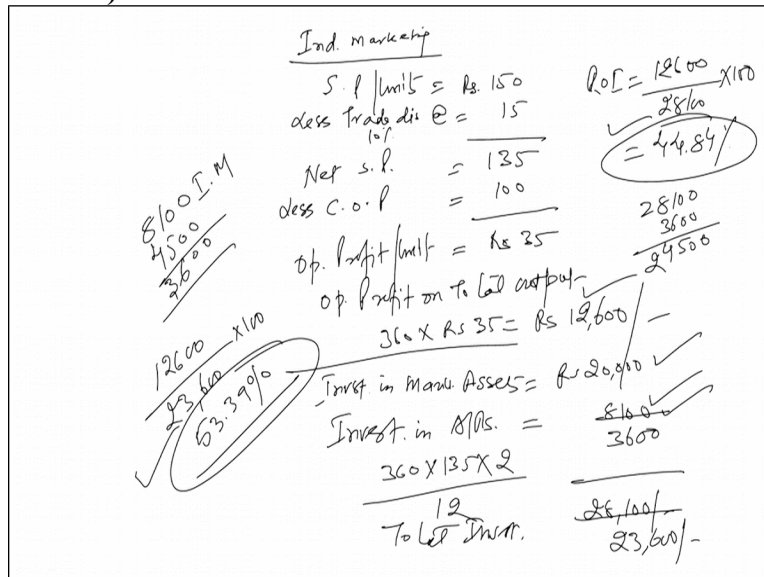 Ind. marketing
S.P/Unit = Rs. 150
Less Trade dis @ 10% = 15
Net S.P. = 135
Less C.O.P = 100
Op. Profit/unit = Rs 35
Op. Profit on Total output
360 X Rs 35 = Rs 12,600/-
Invst in Manu. Assets = Rs 20,000
Invest. in A/Rs. = 8100
3600
360 X 135 X 2
12
Total Invst. 28,100/-
23,600/-
ROI = 12600 X100
28100
= 44.84%
28100
3600
24500
8100 I.M
4500
3600
12600 X100
23,600
53.39%